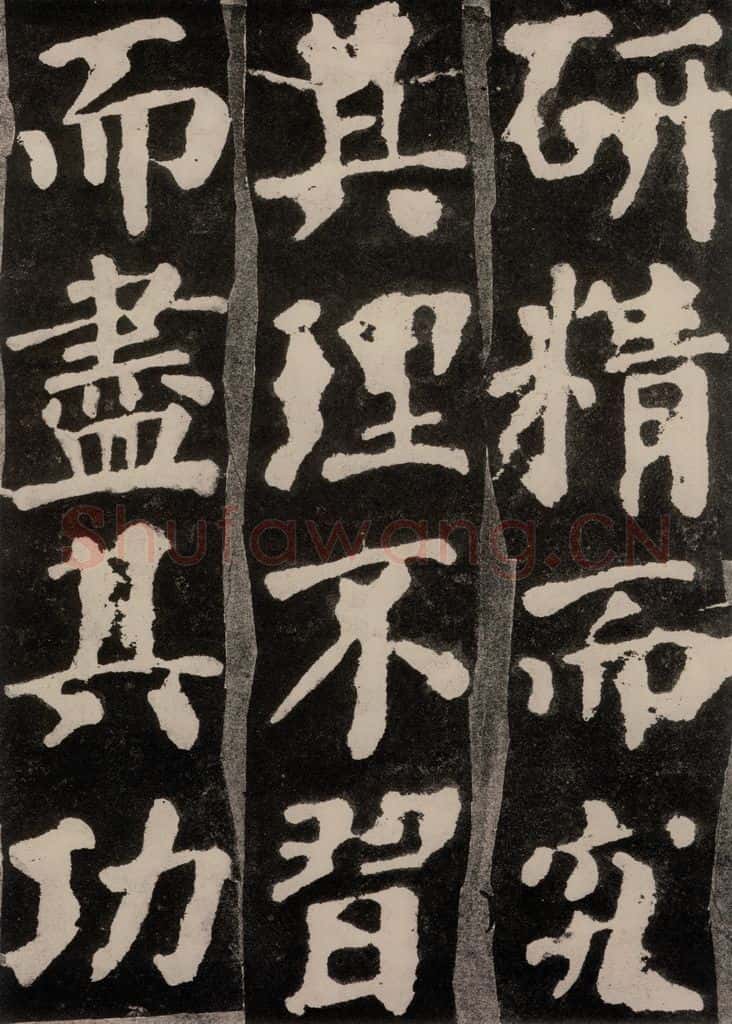 研精而究
其理不習
而盡其功
Shufawang.CN